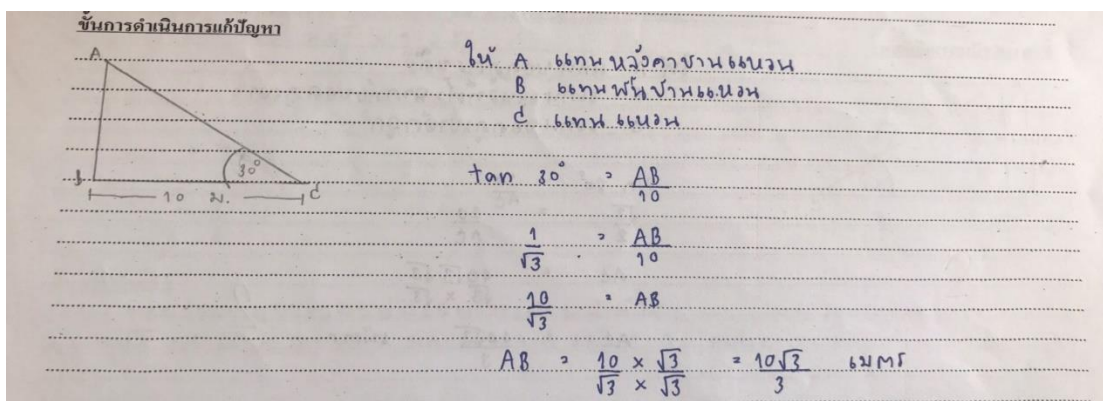 ขั้นการดำเนินการแก้ปัญหา
A
ให้ A แทน หลังคาบ้านแหวน
B แทน พื้นบ้านแหวน
C แทน แหวน
30°
B
10 ม.
C
tan 30° = AB/10
1/√3 = AB/10
10/√3 = AB
AB = 10/√3 × √3/√3 = 10√3/3 เมตร